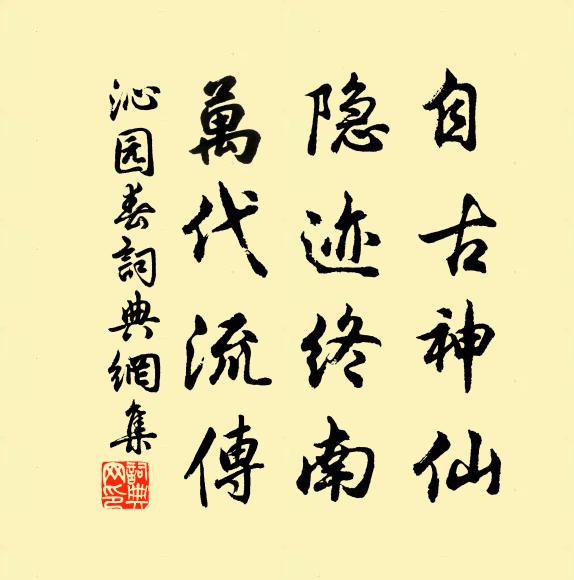 自古神仙
隐迹终南
萬代流傳
沁园春詞典網集
詞典网印